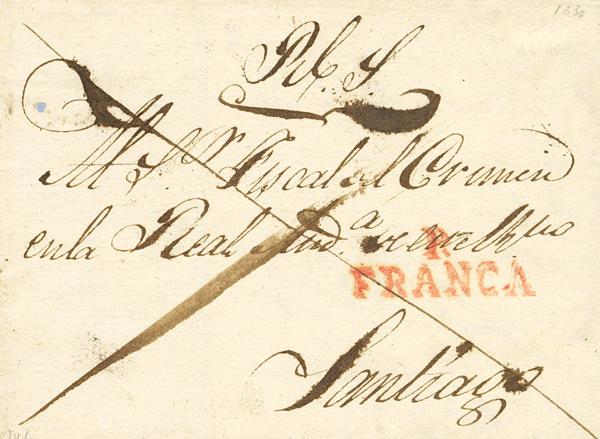 1830
R.l S.
Al S.r Fiscal del Crimen
en la Real Aud.a
R
FRANCA
Santiago